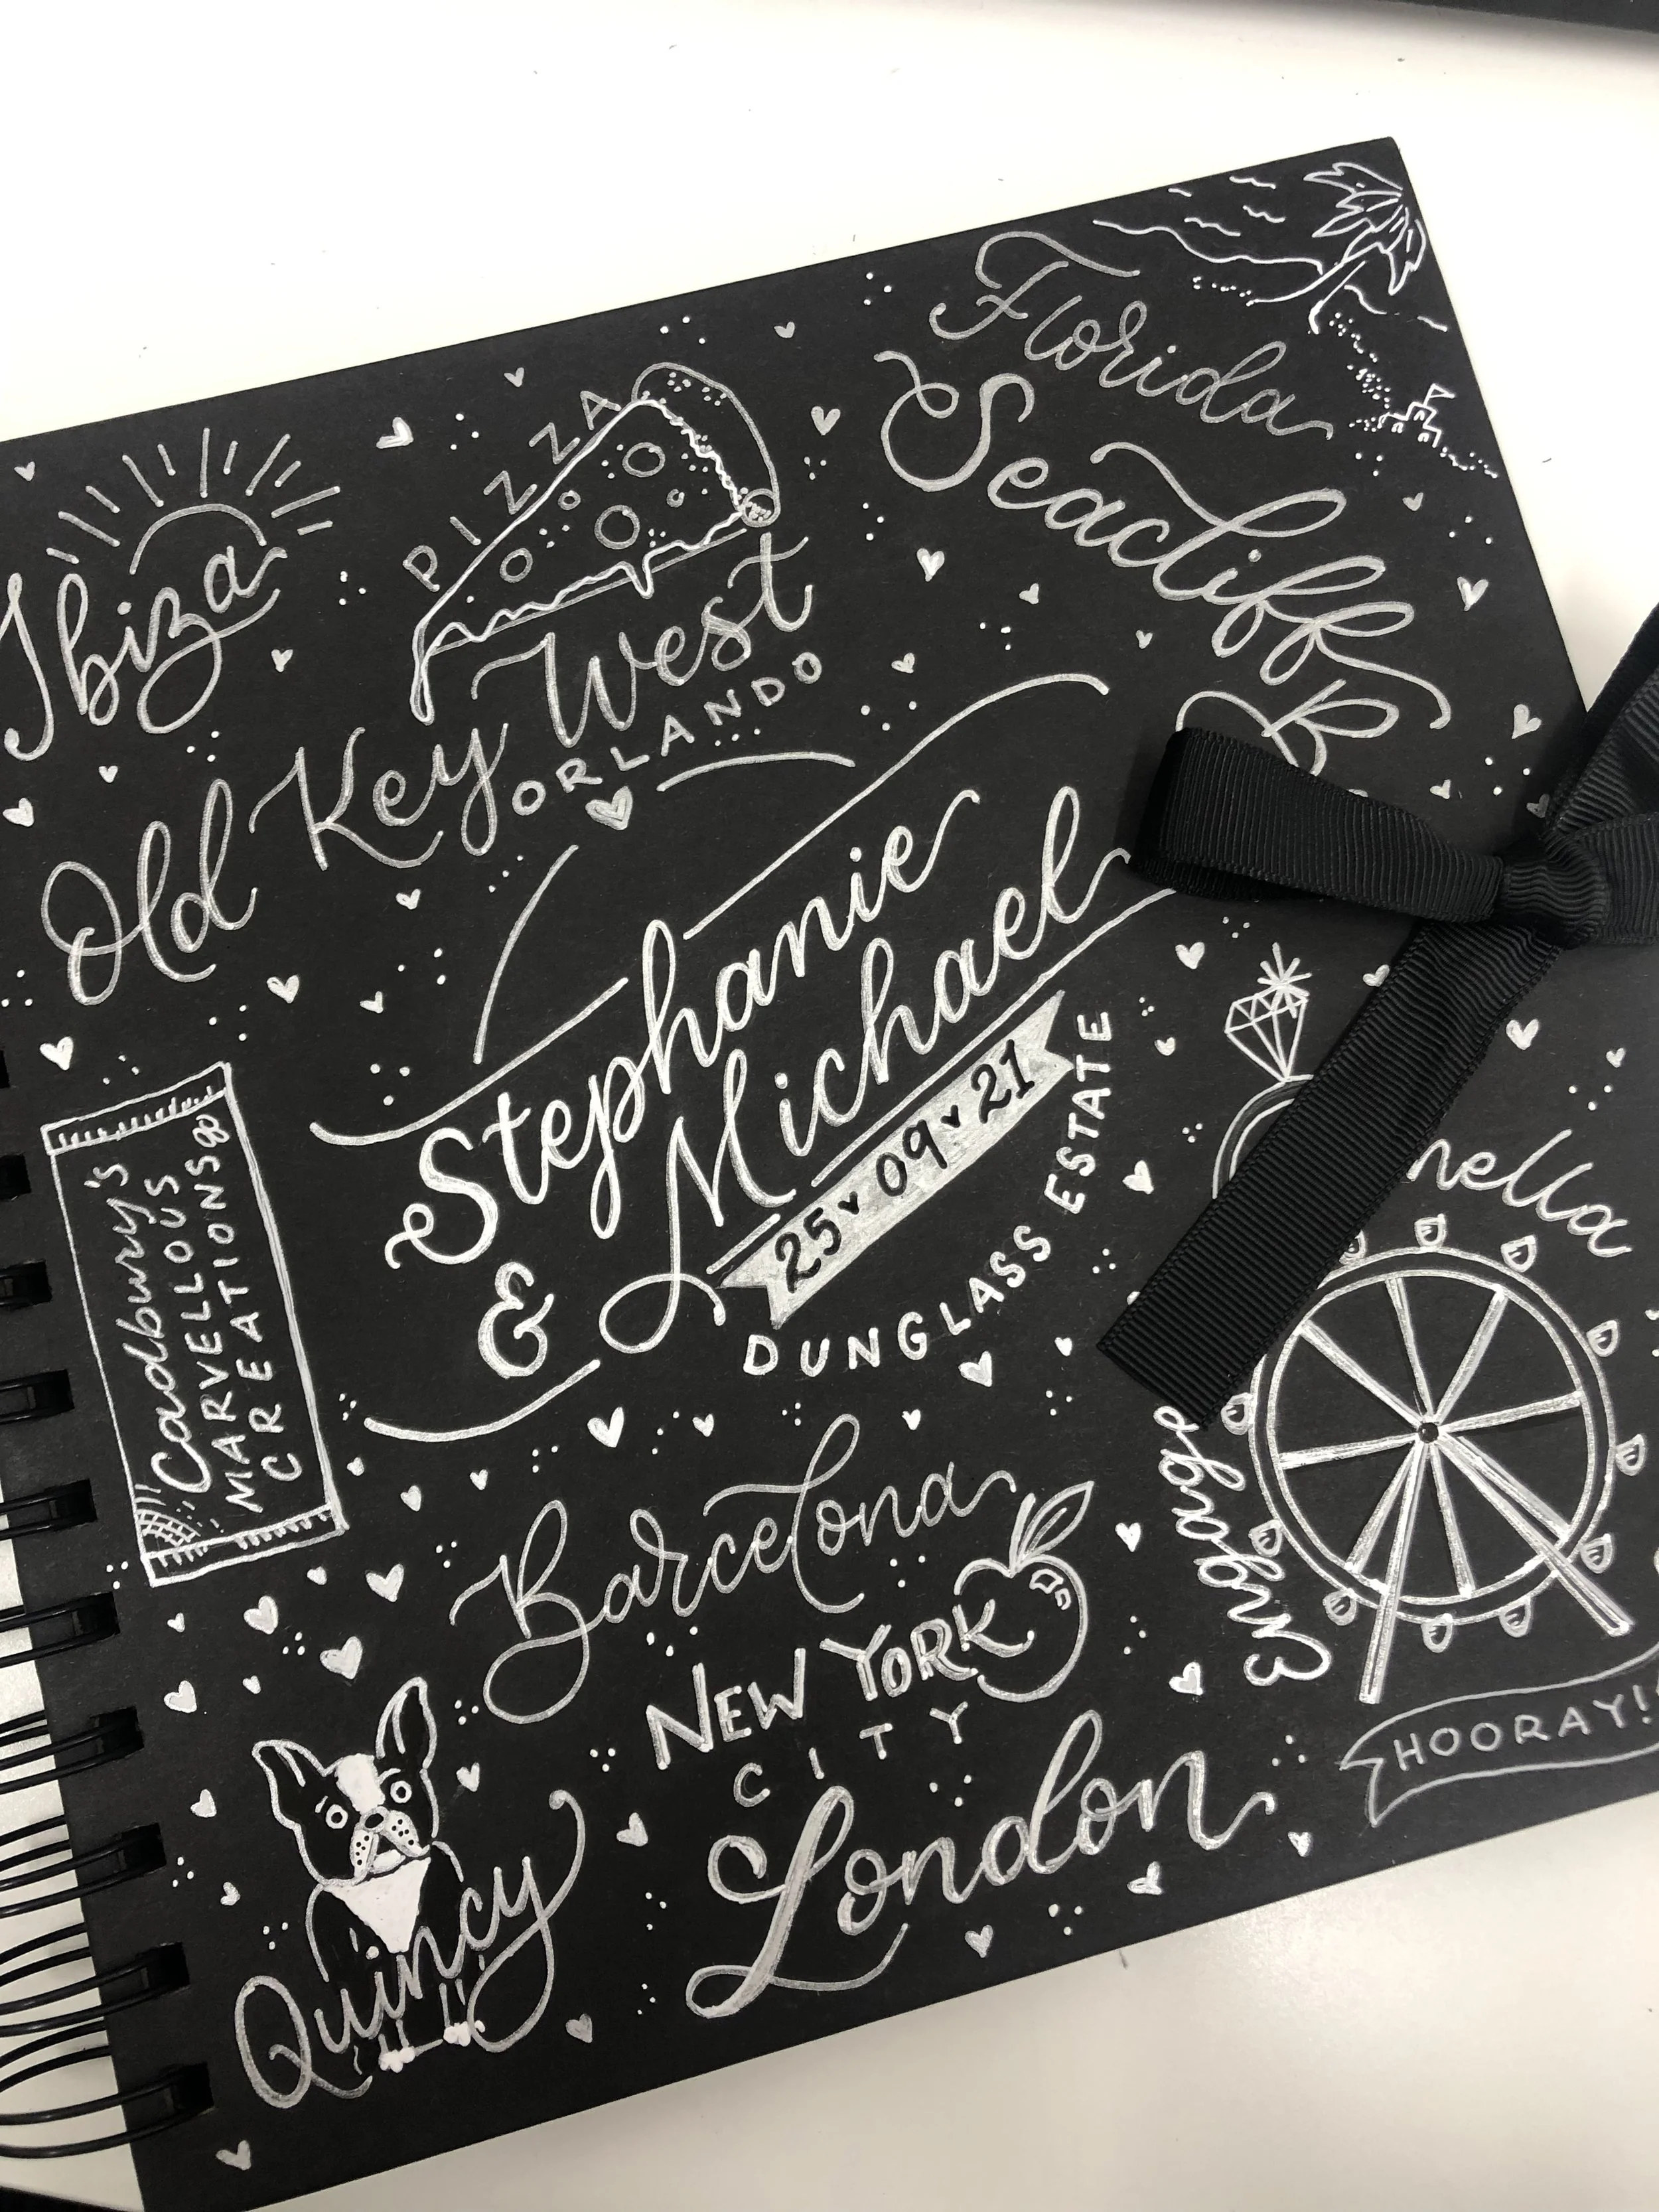 Florida
Seacliff
PIZZA
Ibiza
Old Key West
ORLANDO
Stephanie
& Michael
25 09 21
DUNGLASS ESTATE
Cadbury's
MARVELLOUS
CREATIONS
Barcelona
NEW YORK
CITY
London
Quincy
HOORAY!